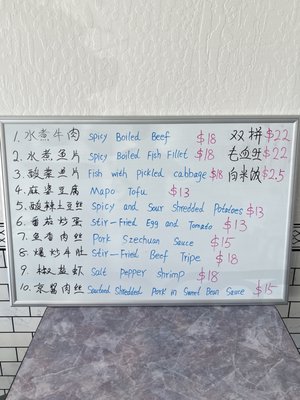 1. 水煮牛肉 Spicy Boiled Beef $18 双拼 $22
2. 水煮鱼片 Spicy Boiled Fish Fillet $18 毛血旺 $22
3. 酸菜鱼片 Fish with Pickled cabbage $18 白米饭 $2.5
4. 麻婆豆腐 Mapo Tofu $13
5. 酸辣土豆丝 Spicy and Sour Shredded Potatoes $13
6. 番茄炒蛋 Stir-Fried Egg and Tomato $13
7. 鱼香肉丝 Pork Szechuan Sauce $15
8. 爆炒牛肚 Stir-Fried Beef Tripe $18
9. 椒盐虾 Salt Pepper shrimp $18
10. 京酱肉丝 Sauteed Shredded Pork in Sweet Bean Sauce $15